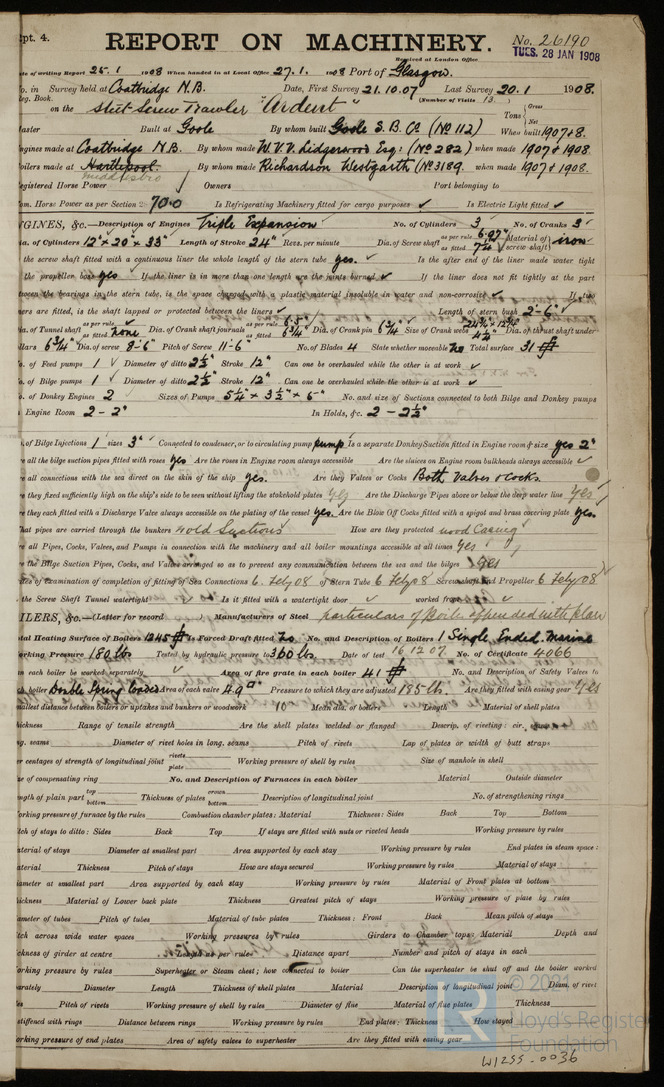 pt. 4.
REPORT ON MACHINERY.
No. 26190
Received at London Office
TUES. 28 JAN 1908
of writing Report 25.1 1908 When handed in at Local Office 27.1. 1908 Port of Glasgow.
in Survey held at Coatbridge N.B. Date, First Survey 21.10.07 Last Survey 20.1 1908.
Book. (Number of Visits 13
on the Steel Screw Trawler "Ardent"
Tons Gross Net
Built at Goole By whom built Goole S.B. Co (No 112) When built 1907+8.
ngines made at Coatbridge N.B. By whom made W.V.V. Lidgerwood Esq: (No 282) when made 1907+1908
oilers made at Hartlepool. By whom made Richardson Westgarth (No 3189. when made 1907+1908.
Middlesbro
egistered Horse Power Owners Port belonging to
Horse Power as per Section 28 70.0 Is Refrigerating Machinery fitted for cargo purposes ✓ Is Electric Light fitted ✓
NGINES, &c.—Description of Engines Triple Expansion No. of Cylinders 3 No. of Cranks 3
of Cylinders 12" × 20" × 33" Length of Stroke 24" Revs. per minute Dia. of Screw shaft as per rule 6.97" as fitted 7¼" Material of screw shaft iron
the screw shaft fitted with a continuous liner the whole length of the stern tube yes. Is the after end of the liner made water tight
the propeller boss yes If the liner is in more than one length are the joints burned ✓ If the liner does not fit tightly at the part
between the bearings in the stern tube, is the space charged with a plastic material insoluble in water and non-corrosive ✓ If two
ners are fitted, is the shaft lapped or protected between the liners ✓ Length of stern bush 2'-6"
of Tunnel shaft as per rule as fitted none Dia. of Crank shaft journals as per rule 6.5" as fitted 6¾" Dia. of Crank pin 6¾" Size of Crank webs Dia. of thrust shaft under
llars 6¾" Dia. of screw 8-6" Pitch of Screw 11-6" No. of Blades 4 State whether moveable no Total surface 31
of Feed pumps 1 ✓ Diameter of ditto 2½" Stroke 12" Can one be overhauled while the other is at work ✓
of Bilge pumps 1 ✓ Diameter of ditto 2½" Stroke 12" Can one be overhauled while the other is at work ✓
of Donkey Engines 2 Sizes of Pumps 5¼" × 3½" × 5" No. and size of Suctions connected to both Bilge and Donkey pumps
Engine Room 2 - 2" In Holds, &c. 2 - 2½"
of Bilge Injections 1 sizes 3" Connected to condenser, or to circulating pump pump Is a separate Donkey Suction fitted in Engine room & size yes 2"
all the bilge suction pipes fitted with roses yes Are the roses in Engine room always accessible Are the sluices on Engine room bulkheads always accessible ✓
all connections with the sea direct on the skin of the ship yes. Are they Valves or Cocks Both, Valves & Cocks.
they fixed sufficiently high on the ship's side to be seen without lifting the stokehold plates yes Are the Discharge Pipes above or below the deep water line yes
they each fitted with a Discharge Valve always accessible on the plating of the vessel yes. Are the Blow Off Cocks fitted with a spigot and brass covering plate yes.
hat pipes are carried through the bunkers Hold Suctions How are they protected wood Casing
all Pipes, Cocks, Valves, and Pumps in connection with the machinery and all boiler mountings accessible at all times yes
the Bilge Suction Pipes, Cocks, and Valves arranged so as to prevent any communication between the sea and the bilges yes
of examination of completion of fitting of Sea Connections 6. Feby 08 of Stern Tube 6 Feby 08 Screw shaft and Propeller 6 Feby 08
the Screw Shaft Tunnel watertight Is it fitted with a watertight door ✓ worked from
ILERS, &c.—(Letter for record ) Manufacturers of Steel particulars of Boiler appended with plan
tal Heating Surface of Boilers 1245 Is Forced Draft fitted no No. and Description of Boilers 1 Single Ended. Marine
orking Pressure 180 lbs Tested by hydraulic pressure to 360 lbs. Date of test 16 12 07 No. of Certificate 4066
each boiler be worked separately ✓ Area of fire grate in each boiler 41 No. and Description of Safety Valves to
boiler Double Spring loaded Area of each valve 4.9 Pressure to which they are adjusted 185 lbs. Are they fitted with easing gear Yes
mallest distance between boilers or uptakes and bunkers or woodwork 10" Mean dia. of boilers Length Material of shell plates
hickness Range of tensile strength Are the shell plates welded or flanged Descrip. of riveting: cir.
ng. seams Diameter of rivet holes in long. seams Pitch of rivets Lap of plates or width of butt straps
er centages of strength of longitudinal joint rivets plate Working pressure of shell by rules Size of manhole in shell
ze of compensating ring No. and Description of Furnaces in each boiler Material Outside diameter
ngth of plain part top bottom Thickness of plates crown bottom Description of longitudinal joint No. of strengthening rings
orking pressure of furnace by the rules Combustion chamber plates: Material Thickness: Sides Back Top Bottom
tch of stays to ditto: Sides Back Top If stays are fitted with nuts or riveted heads Working pressure by rules
aterial of stays Diameter at smallest part Area supported by each stay Working pressure by rules End plates in steam space:
aterial Thickness Pitch of stays How are stays secured Working pressure by rules Material of stays
iameter at smallest part Area supported by each stay Working pressure by rules Material of Front plates at bottom
hickness Material of Lower back plate Thickness Greatest pitch of stays Working pressure of plate by rules
iameter of tubes Pitch of tubes Material of tube plates Thickness: Front Back Mean pitch of stays
tch across wide water spaces Working pressures by rules Girders to Chamber tops: Material Depth and
ckness of girder at centre Length as per rule Distance apart Number and pitch of stays in each
orking pressure by rules Superheater or Steam chest; how connected to boiler Can the superheater be shut off and the boiler worked
arately Diameter Length Thickness of shell plates Material Description of longitudinal joint Diam. of rivet
Pitch of rivets Working pressure of shell by rules Diameter of flue Material of flue plates Thickness
stiffened with rings Distance between rings Working pressure by rules End plates: Thickness How stayed
orking pressure of end plates Area of safety valves to superheater Are they fitted with easing gear
© 2021
Lloyd's Register
Foundation
W1255-0036